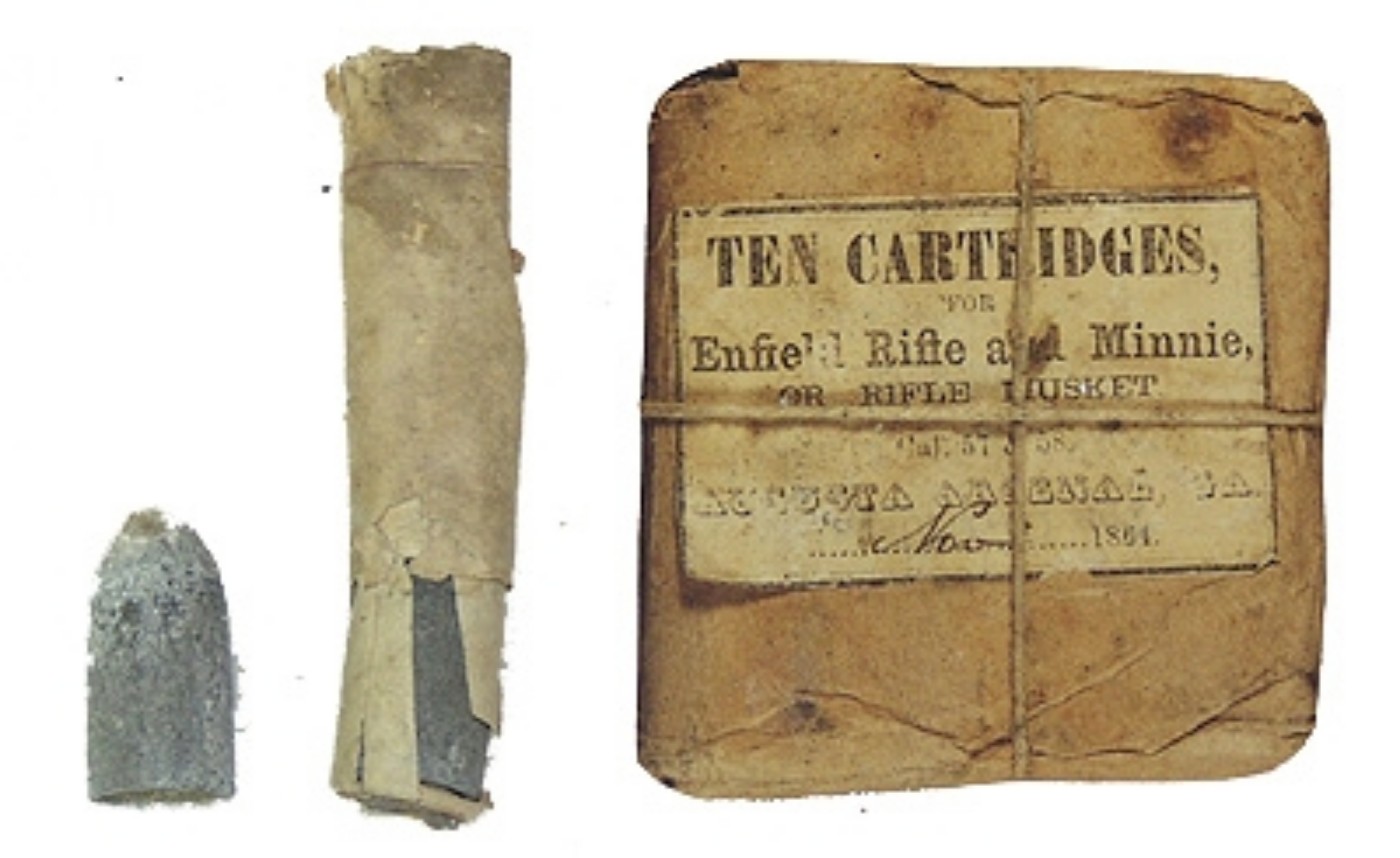 TEN CARTRIDGES,
FOR
Enfield Rifle and Minnie,
OR RIFLE MUSKET
Cal. 57 & 58.
AUGUSTA ARSENAL, GA.
Nov 1864.